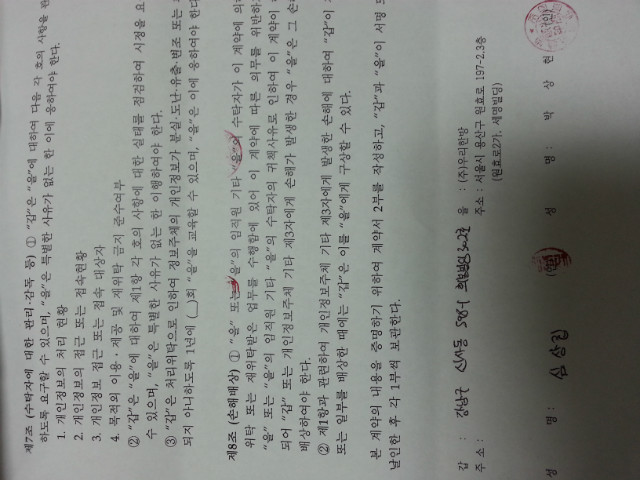 제7조 (수탁자에 대한 관리·감독 등) ① “갑”은 “을”에 대하여 다음 각 호의 사항을 관
하도록 요구할 수 있으며, “을”은 특별한 사유가 없는 한 이에 응하여야 한다.
1. 개인정보의 처리 현황
2. 개인정보의 접근 또는 접속현황
3. 개인정보 접근 또는 접속 대상자
4. 목적외 이용·제공 및 재위탁 금지 준수여부
② “갑”은 “을”에 대하여 제1항 각 호의 사항에 대한 실태를 점검하여 시정을 요
수 있으며, “을”은 특별한 사유가 없는 한 이행하여야 한다.
③ “갑”은 처리위탁으로 인하여 정보주체의 개인정보가 분실·도난·유출·변조 또는
되지 아니하도록 1년에 (_)회 “을”을 교육할 수 있으며, “을”은 이에 응하여야 한다
제8조 (손해배상) ① “을” 또는 “을”의 임직원 기타 “을”의 수탁자가 이 계약에 의
위탁 또는 재위탁받은 업무를 수행함에 있어 이 계약에 따른 의무를 위반하
“을” 또는 “을”의 임직원 기타 “을”의 수탁자의 귀책사유로 인하여 이 계약이
되어 “갑” 또는 개인정보주체 기타 제3자에게 손해가 발생한 경우 “을”은 그 손
배상하여야 한다.
② 제1항과 관련하여 개인정보주체 기타 제3자에게 발생한 손해에 대하여 “갑”이
또는 일부를 배상한 때에는 “갑”은 이를 “을”에게 구상할 수 있다.
본 계약의 내용을 증명하기 위하여 계약서 2부를 작성하고, “갑”과 “을”이 서명
날인한 후 각 1부씩 보관한다.
갑 : 강남구 신사동 598-1 을 : (주)우리한방
주 소 : 주소 : 서울시 용산구 원효로 197-2,3층
(원효로2가, 세명빌딩)
성 명 : 심상길 (인) 성 명 : 박 상 현 (인)